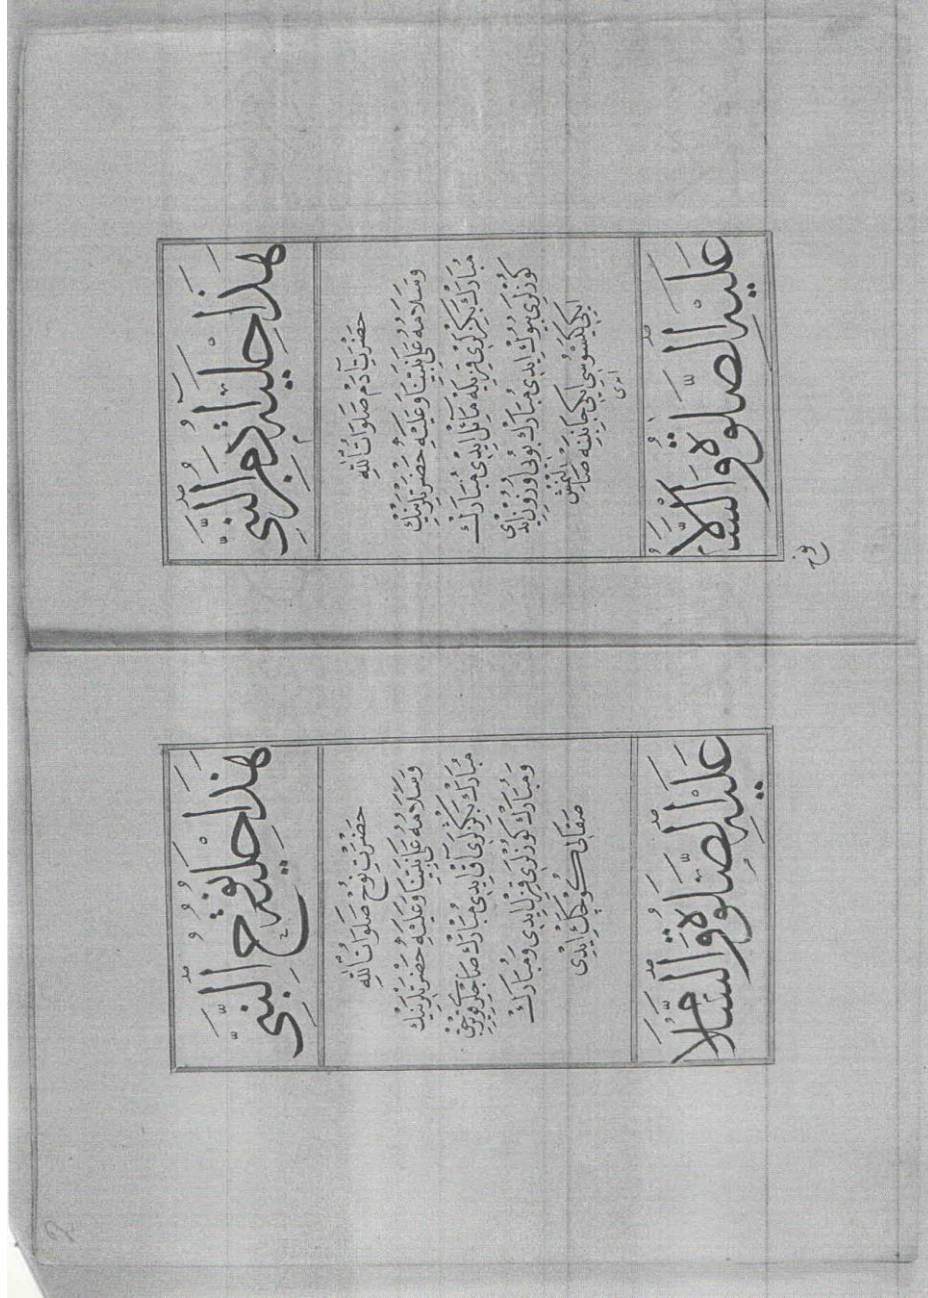 هَذَا حِلْيَةُ آدَمَ النَّبِىُّ
حَضْرَتِ آدَمْ صَلَوَاتُ اللّٰهِ
وَسَلَامُهُ عَلَى نَبِيِّنَا وَعَلَيْهِ حَضْرَتْلَرِينِكْ
مُبَارَكْ بَكِزْلَرِى قِزِيلَه مَائِل اِيدِى مُبَارَكْ
كُوزْلَرِى بُيُوكْ اِيدِى مُبَارَكْ بُويِى اُوزُونْ اِيدِى
اِيكِى كِيسُوسِى اِيكِى جَانِبِنَه صَارْلَنْمِشْ
ايدى
عَلَيْهِ الصَّلٰوةُ وَالسَّلَامُ
نوح
هَذَا حِلْيَةُ نُوحُ النَّبِىُّ
حَضْرَتِ نُوحْ صَلَوَاتُ اللّٰهِ
وَسَلَامُهُ عَلَى نَبِيِّنَا وَعَلَيْهِ حَضْرَتْلَرِينِكْ
مُبَارَكْ بَكِزْلَرِى آقْ اِيدِى مُبَارَكْ
وَمُبَارَكْ كُوزْلَرِى قِزِلْ اِيدِى وَمُبَارَكْ
صَقَالِى كُوچَكْ اِيدِى
عَلَيْهِ الصَّلٰوةُ وَالسَّلَامُ